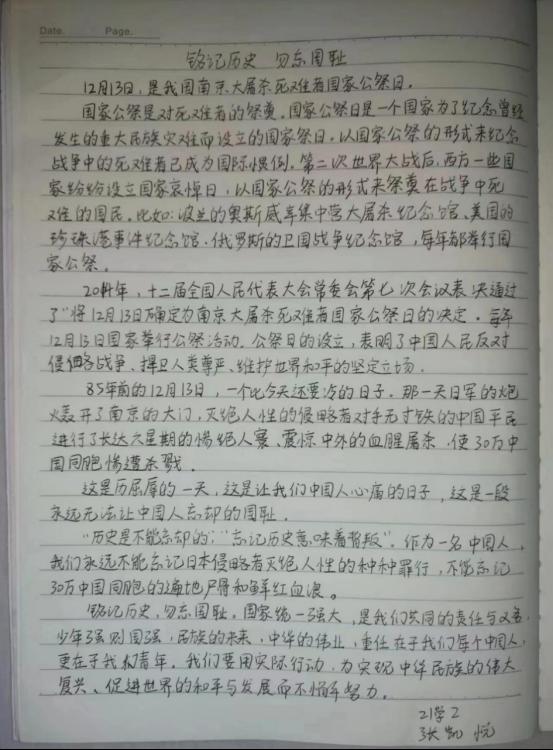 Date.
Page.
铭记历史 勿忘国耻
12月13日,是我国南京大屠杀死难者国家公祭日。
国家公祭是对死难者的祭奠。国家公祭日是一个国家为了纪念曾经
发生的重大民族灾难而设立的国家祭日。以国家公祭的形式来纪念
战争中的死难者已成为国际惯例。第二次世界大战后,西方一些国
家纷纷设立国家哀悼日,以国家公祭的形式来祭奠在战争中死
难的国民。比如:波兰的奥斯威辛集中营大屠杀纪念馆、美国的
珍珠港事件纪念馆、俄罗斯的卫国战争纪念馆,每年都举行国
家公祭。
2014年,十二届全国人民代表大会常委会第七次会议表决通过
了"将12月13日确定为南京大屠杀死难者国家公祭日的决定。每年
12月13日国家举行公祭活动。公祭日的设立,表明了中国人民反对
侵略战争、捍卫人类尊严、维护世界和平的坚定立场。
85年前的12月13日,一个比今天还要冷的日子。那一天日军的炮
火轰开了南京的大门,灭绝人性的侵略者对手无寸铁的中国平民
进行了长达六星期的惨绝人寰、震惊中外的血腥屠杀,使30万中
国同胞惨遭杀戮。
这是历屈辱的一天,这是让我们中国人心痛的日子,这是一段
永远无法让中国人忘却的国耻。
"历史是不能忘却的","忘记历史意味着背叛"。作为一名中国人,
我们永远不能忘记日本侵略者灭绝人性的种种罪行,不能忘记
30万中国同胞的遍地尸骨和鲜红血浪。
铭记历史,勿忘国耻。国家统一强大,是我们共同的责任与义务,
少年强则国强,民族的未来,中华的伟业,重任在于我们每个中国人,
更在于我们青年。我们要用实际行动,为实现中华民族的伟大
复兴、促进世界的和平与发展而不懈努力。
21学2
张凯悦